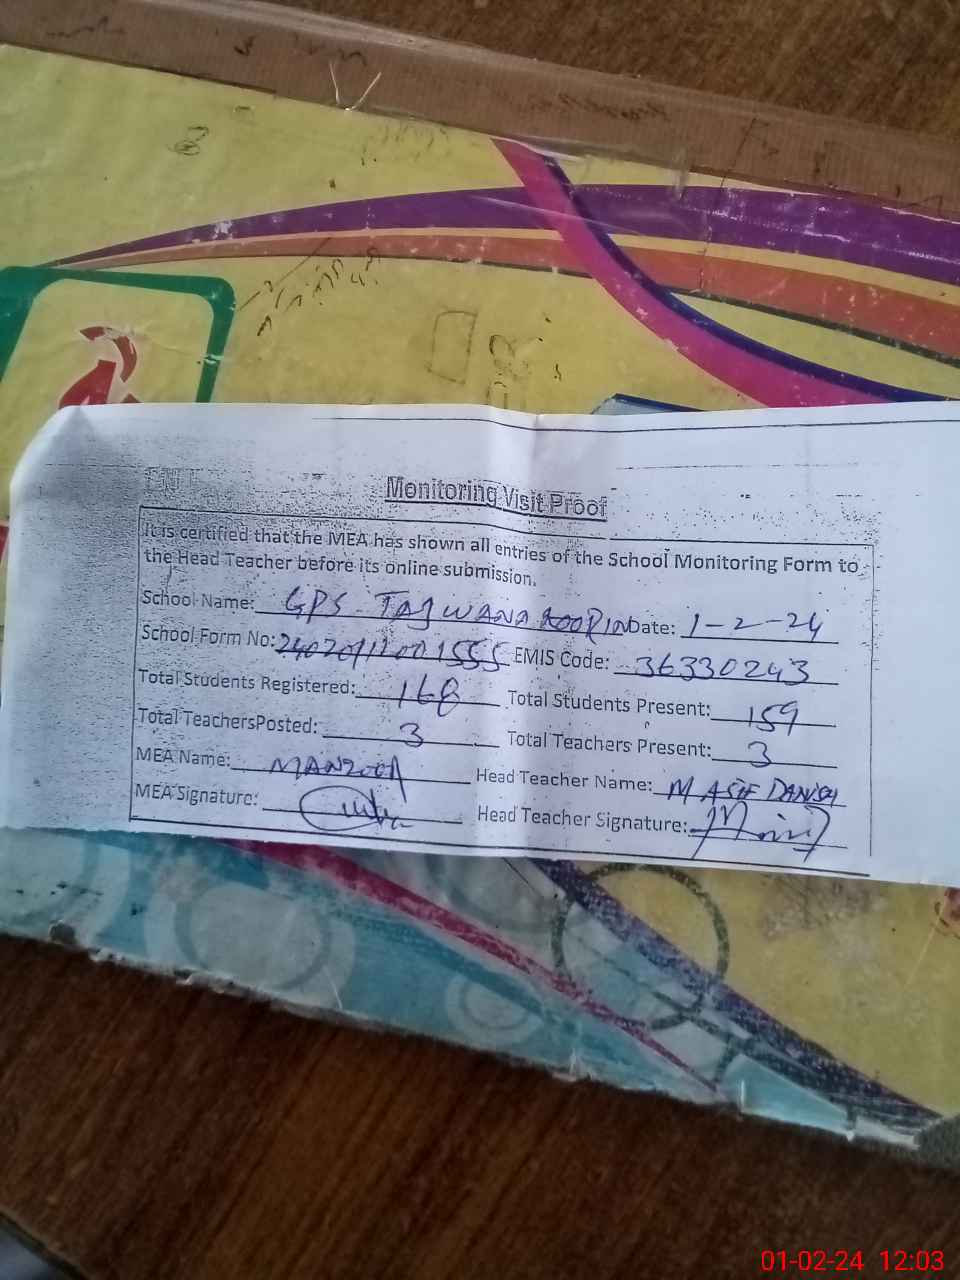 Monitoring Visit Proof
It is certified that the MEA has shown all entries of the School Monitoring Form to
the Head Teacher before its online submission.
School Name: GPS TAJWANA Date: 1-2-24
School Form No: EMIS Code: 36330243
Total Students Registered: 168 Total Students Present: 159
Total TeachersPosted: 3 Total Teachers Present: 3
MEA Name: MANZOOR Head Teacher Name: M ASIF DANISH
MEA Signature: Head Teacher Signature:
01-02-24 12:03